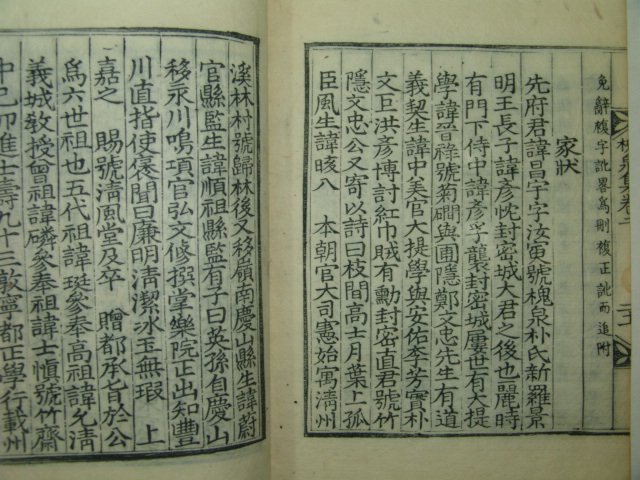 免辭複字訛畧爲則複正訛而追附
家狀
先府君諱昌宇字汝寅號槐泉朴氏新羅景
明王長子諱彥忱封密城大君之後也麗時
有門下侍中諱彥孚襲封密城屢世有大提
學諱晉祿號菊磵與圃隱鄭文忠先生有道
義契生諱中美官大提學與安佑李芳實朴
文巨洪彥博討紅巾賊有勳封密直君號竹
隱文忠公又寄以詩曰枝間高士月葉上孤
臣風生諱晐入 本朝官大司憲始寓淸州
溪林村號歸林後又移嶺南慶山縣生諱蔚
官縣監生諱順祖縣監有子曰英孫自慶山
移永川鳴項官弘文修撰掌樂院正出知豐
川直指使褒聞曰廉明淸潔冰玉無瑕 上
嘉之 賜號淸風堂及卒 贈都承旨於公
爲六世祖也五代祖諱珽參奉高祖諱允淸
義城教授曾祖諱磷參奉祖諱士愼號竹齋
中己卯進士壽九十三敦寧都正學行載州